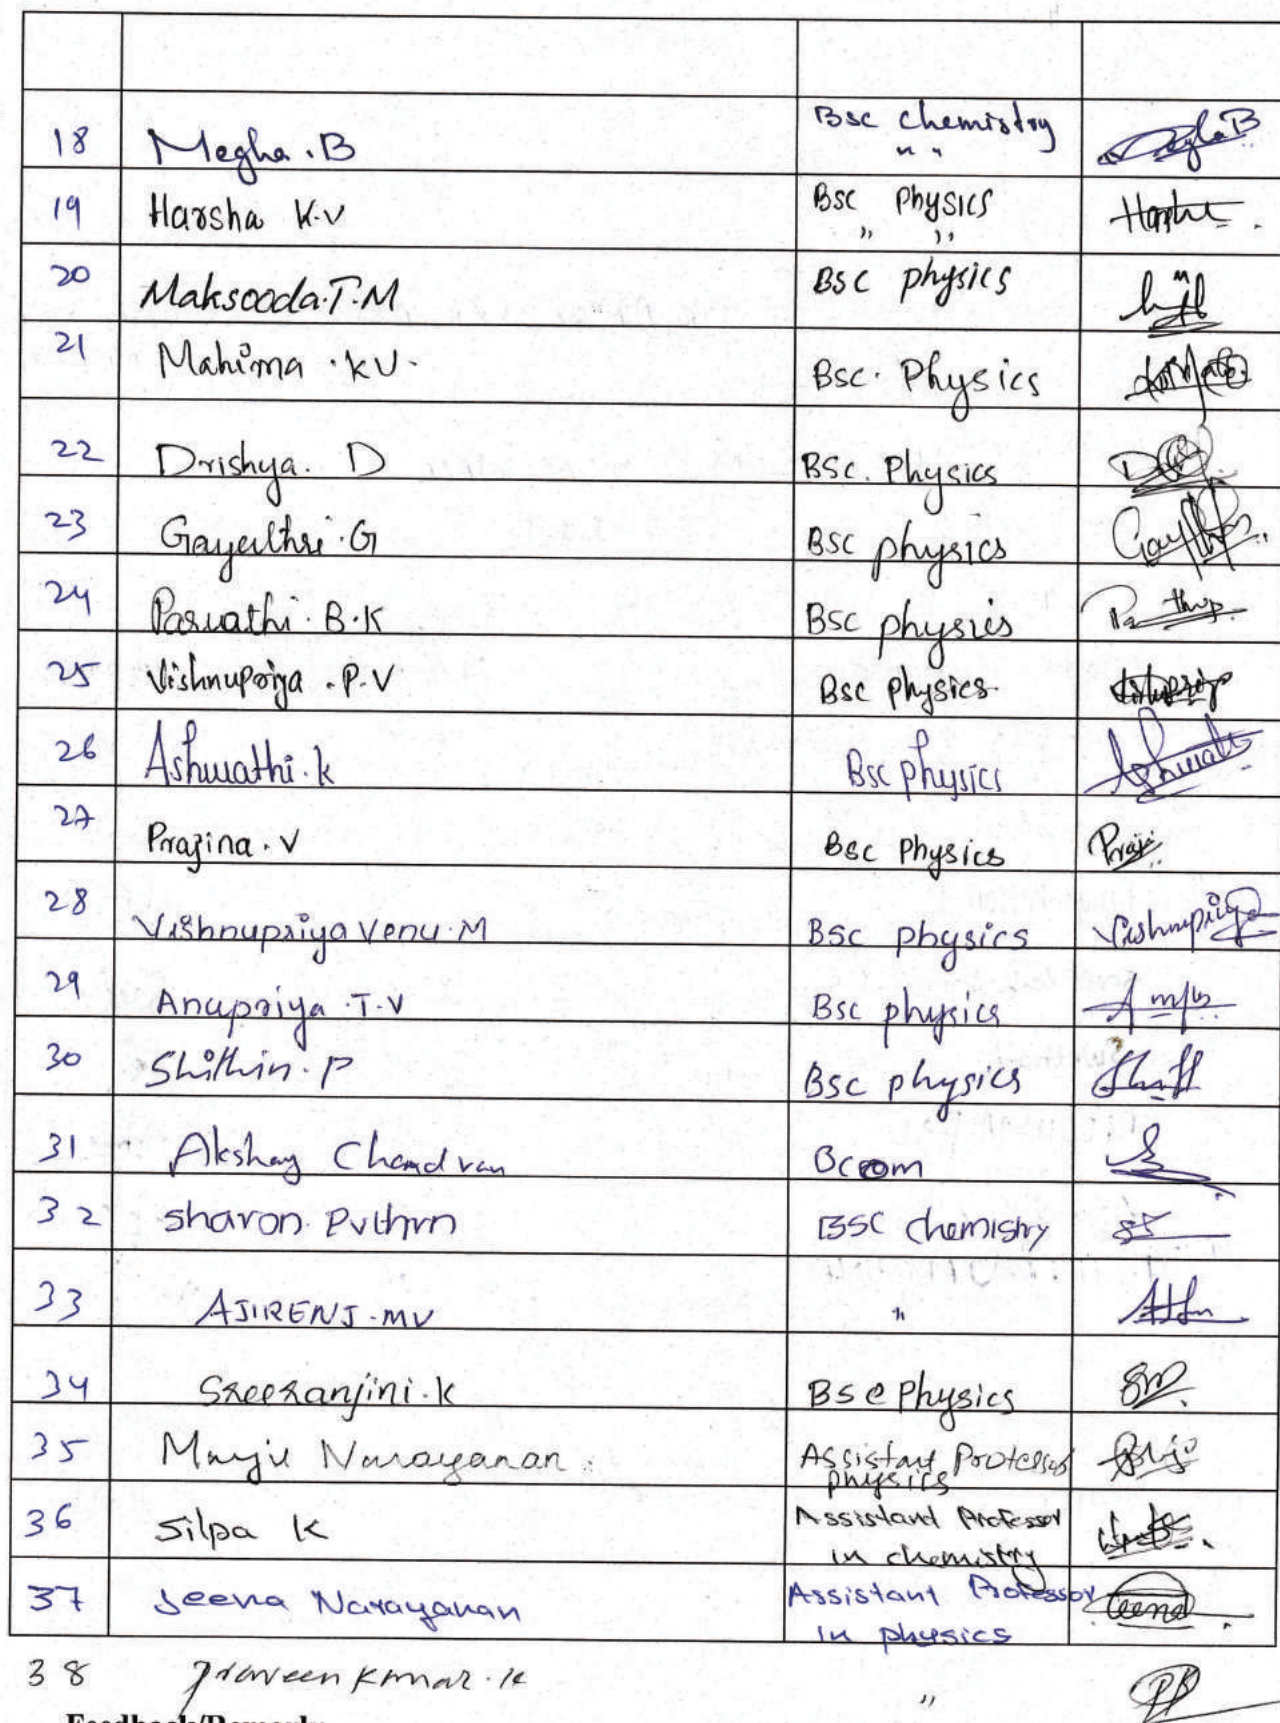 18 Megha.B Bsc chemistry MeghaB
" "
19 Harsha K.V Bsc Physics Harsha
" "
20 Maksooda.T.M Bsc physics
21 Mahima .KV. Bsc. Physics
22 Drishya. D BSC. Physics
23 Gayathri.G Bsc physics
24 Parvathi.B.K Bsc physics
25 Vishnupriya.P.V Bsc physics
26 Ashwathi.k Bsc physics Ashwathi
27 Prajina.V Bsc Physics Praji
28 Vishnupriya Venu.M Bsc physics Vishnupriya
29 Anupriya.T.V Bsc physics
30 Shithin.P Bsc physics
31 Akshay Chandran Bcom
32 sharon BSC chemistry
33 AJIRENJ.MV "
34 Sreeranjini.K Bsc Physics
35 Manju Narayanan Assistant Professor
physics
36 Silpa K Assistant Professor
in chemistry
37 Jeena Narayanan Assistant Professor
in physics
38 Praveen Kumar.K "
Feedback/Remarks